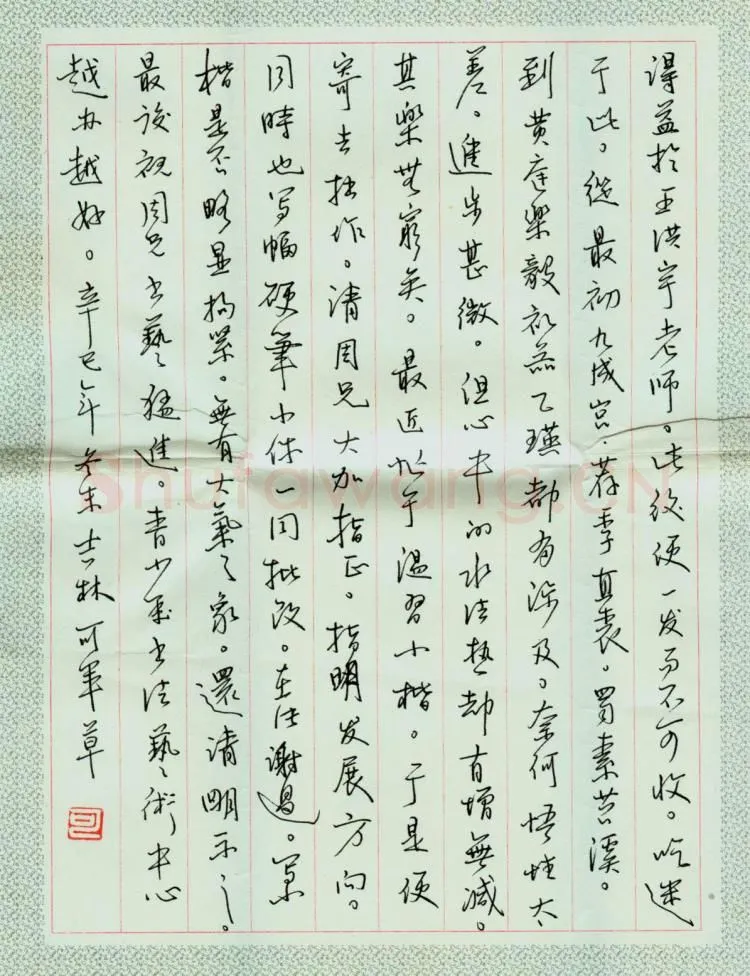 得益於王洪宇老师。此後便一发而不可收。吃迷
于此。從最初九成宫.荐季直表。蜀素苕溪。
到黄庭樂毅礼器乙瑛都有涉及。奈何悟性太
差。進步甚微。但心中的法热却有增無减。
其樂無窮矣。最近忙于温習小楷。于是便
寄去拙作。请周兄大加指正。指明发展方向。
同時也写幅硬筆小作一同批改。在此谢过。写小
楷是否略显拘緊。無有大氣之象。還请明示之。
最後祝周兄书藝猛進。青少年书法藝術中心
越办越好。辛巳年冬末吉林可軍草
shufawang.cn